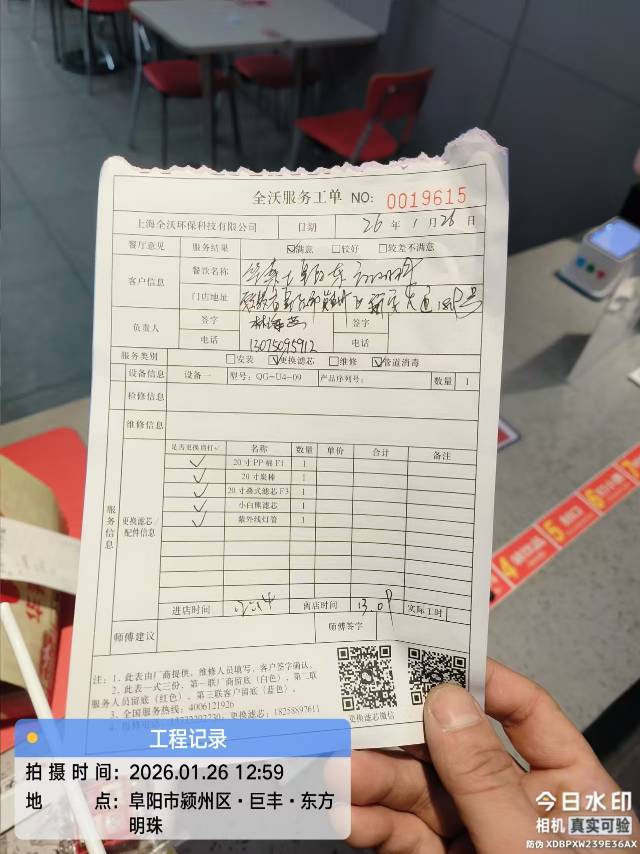 全沃服务工单 NO: 0019615
上海全沃环保科技有限公司 日期 26 年 1 月 26 日
餐厅意见 服务结果 ☑满意 □较好 □较差不满意
客户信息 餐饮名称
门店地址
负责人 签字 签字
电话 13075095912 电话
服务类别 □安装 ☑更换滤芯 □维修 ☑管道消毒
设备信息 设备一 型号: QG-U4-09 产品序列号: 数量 1
检修信息
维修信息
服务信息
更换滤芯/配件信息
是否更换请打√ 名称 数量 单价 合计 备注
✓ 20寸PP棉F1 1
✓ 20寸炭棒 1
✓ 20寸叠式滤芯F3 1
✓ 小白熊滤芯 1
✓ 紫外线灯管 1
进店时间 离店时间 实际工时
师傅建议 师傅签字
注: 1、此表由厂商提供, 维修人员填写, 客户签字确认。
2、此表一式三份, 第一联厂商留底(白色), 第二联
服务人员留底(红色), 第三联客户留底(蓝色)。
3、全国服务热线: 4006121926
更换滤芯: 18258897611
更换滤芯微信
工程记录
拍摄时间: 2026.01.26 12:59
地点: 阜阳市颍州区·巨丰·东方
明珠
今日水印
相机 真实可验
防伪 XDBPXW239E36AX